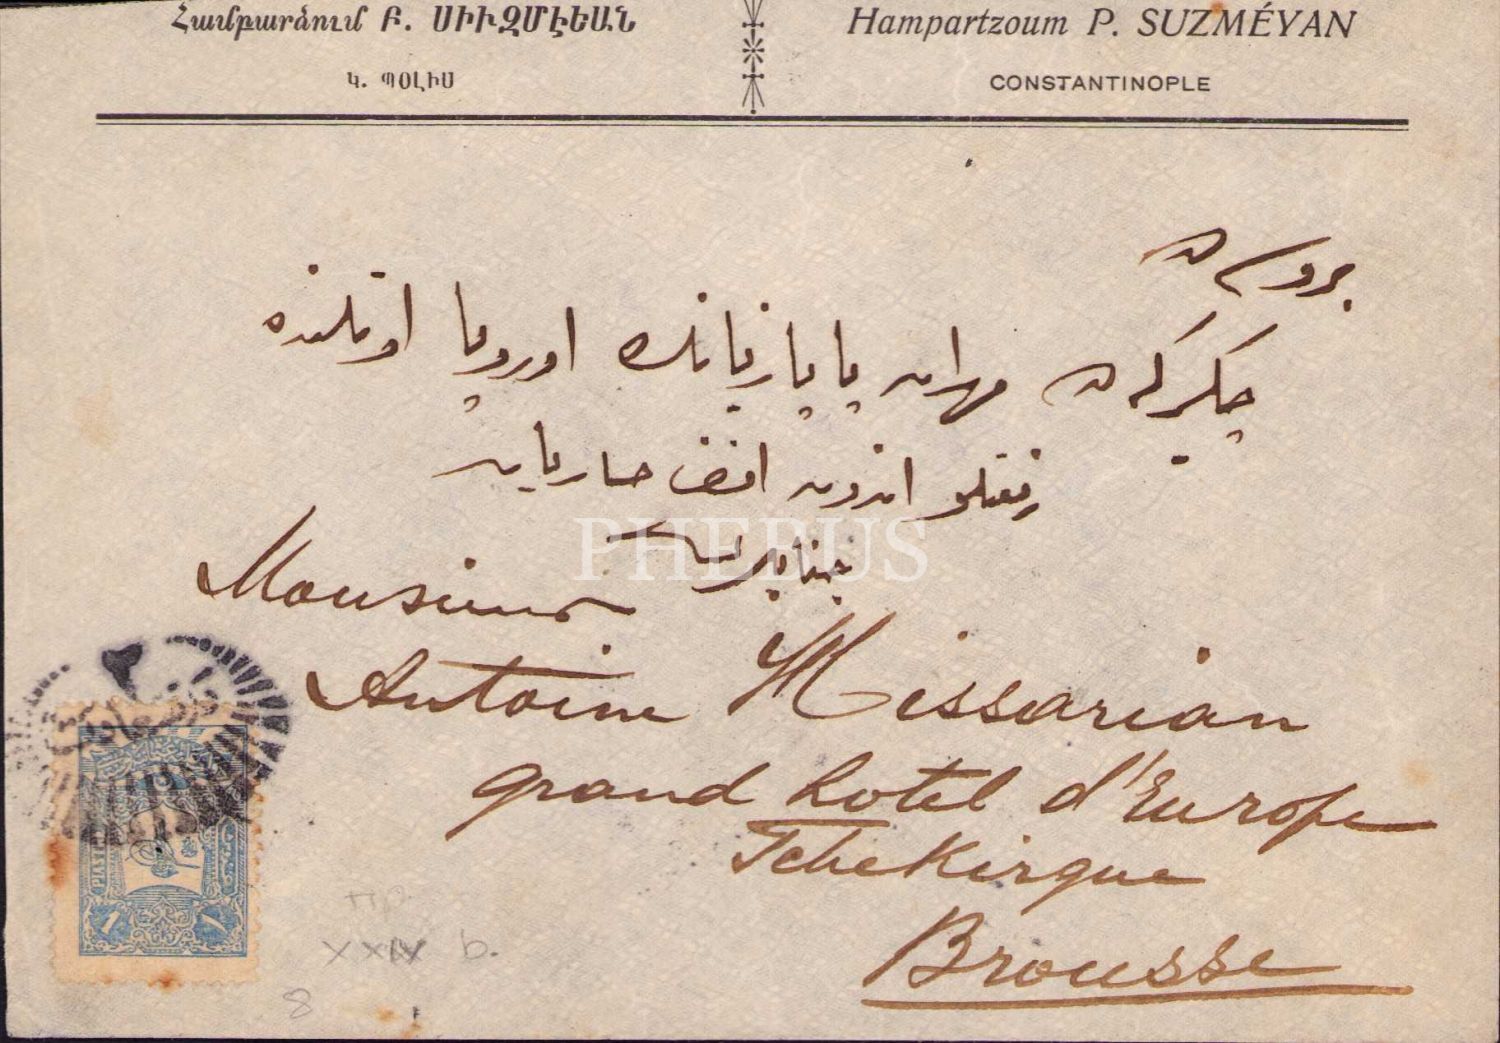 Համբարձում Բ. ՍԻՒԶՄԷԵԱՆ
Կ. ՊՕԼԻՍ
Hampartzoum P. SUZMÉYAN
CONSTANTINOPLE
بروسه ده
چكركه ده مهران پاپازيانك اوروپا اوتلنده
رفعتلو اندون افندی
جنابلرينه
PHEBUS
Monsieur
Antoine Missarian
grand hotel d'Europe
Tchekirgue
Brousse
PIASTRE
1 ١
XXIV b.
8